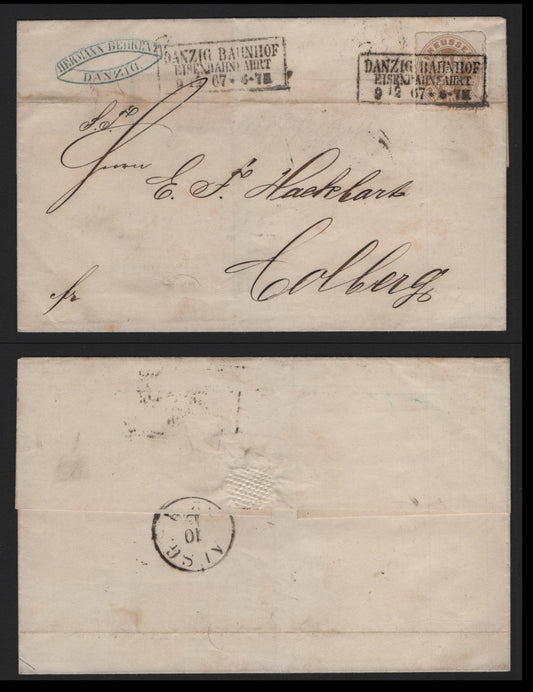 HERMANN BEHRENT
DANZIG
DANZIG BAHNHOF
EISENBAHNFAHRT
9 12 67 * 6-7N
PREUSSEN
DANZIG BAHNHOF
EISENBAHNFAHRT
9 12 67 * 6-7N
Herrn
E. F. Haekhart
Colberg
fr
AUSG
10